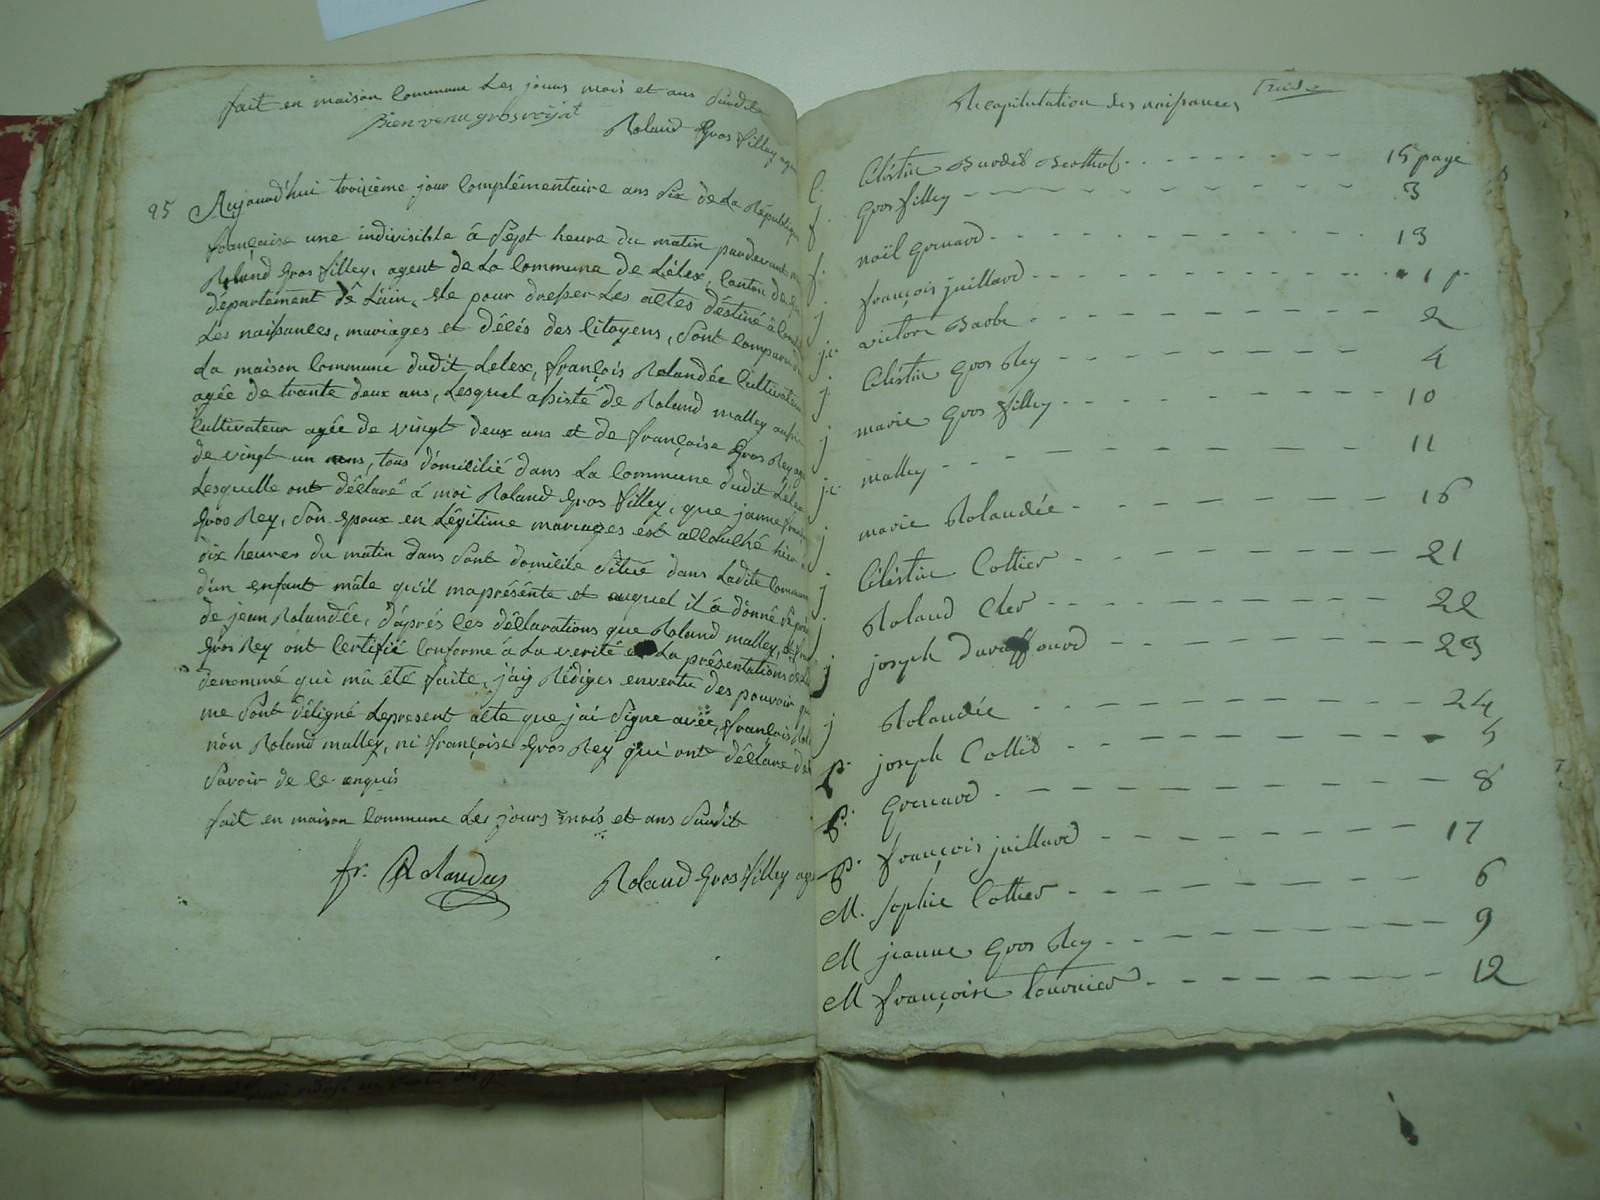 fait en maison Commune Les jours mois et ans Susdit
Bienvenu grosroijat
Roland Gros filley agent
25 Aujourd'hui troisième jour Complémentaire ans Six de La République
française une indivisible à Sept heure du matin pardevant moi
Roland Gros filley, agent de La Commune de Lélex, Canton de
département de L'ain, élu pour dresser Les actes déstiné à Const
Les naissances, mariages et décés des Citoyens, Sont Comparu dans
La maison Commune dudit Lelex, françois Rolandée Cultivateur
agée de trante deux ans, Lesquel assisté de Roland malley aussi
Cultivateur agée de vingt deux ans et de françoise Gros Rey agée
de vingt un ans, tous domicilié dans La Commune dudit Lélex
Lesquelle ont déclaré à moi Roland Gros filley, que janne
Gros Rey, Son Epoux en Légitime mariages est accouché hier
dix heures du matin dans Sont domicile Situé dans Ladite Commune
d'un enfant mâle qu'il ma présénte et auquel il à donné Le préno
de jean Rolandée, d'aprés Les déclarations que Roland malley,
Gros Rey ont Certifié Conforme à La verité et La présentations de
denommé qui ma été faite, j'aij Rédiges envertu des pouvoir qui
me Sont déligné Lepresent acte que j'ai Signe avéc, françois Rol
nòn Roland malley, ni françoise Gros Rey qui ont déclare
Savoir de Ce enquis
fait en maison Commune Les jours mois et ans Susdit
fr. Rolandez Roland Gros filley age
Recapitulation des naissances
C. Célestin Burdet Berthet 15 page
f Gros filley 3
f. noël Grenard 13
f. françois juillard 1
j victoire Barbe 2
j.c. Célestin Gros Rey 4
j marie Gros filley 10
j malley 11
j.c. marie Rolandée 16
j Célestin Cottier 21
j Roland Cler 22
j joseph Duraffourd 23
j Rolandée 24
P. joseph Cottier 5
P. Grenard 8
P. françois juillard 17
M. Sophie Cottier 6
M jeanne Gros Rey 9
M françoise Tournier 12